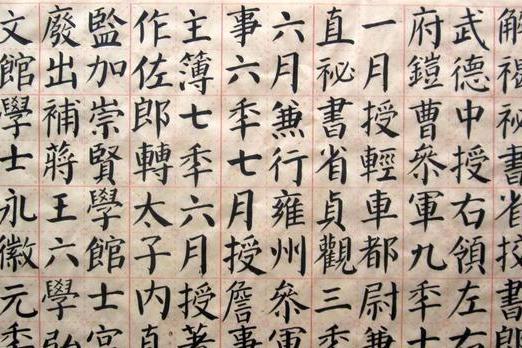 解褐祕書省挍書郎
武德中授右領左右
府鎧曹參軍九秊十
一月授輕車都尉兼
直祕書省貞觀三秊
六月兼行雍州參軍
事六秊七月授詹事
主簿七秊六月授著
作佐郎轉太子內直
監加崇賢學館士宮
廢出補蔣王六學弘
文館學士永徽元秊